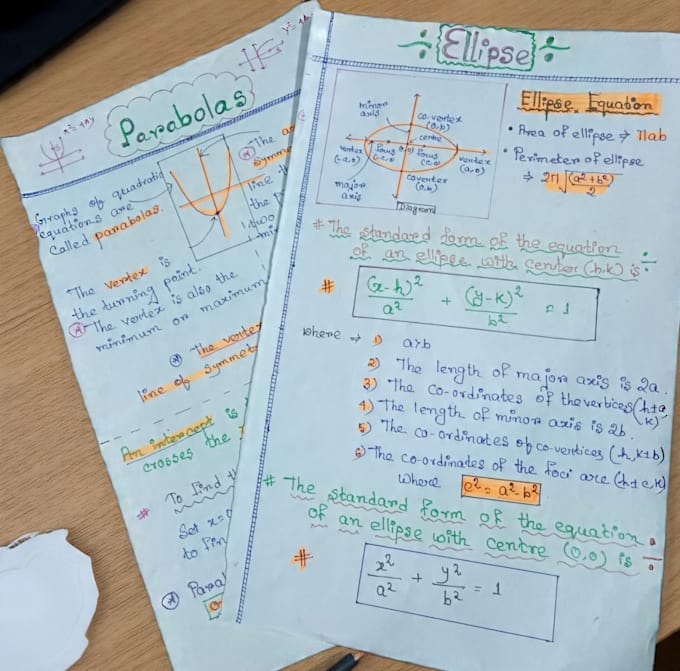 Parabolas
x² = 4ay
Graphs of quadratic
equations are
called parabolas.
The vertex is
the turning point.
The vertex is also the
minimum or maximum
The vertex
line of symmet
An intercept is
crosses the
To find
Set x=0
to fin
Para
The
symme
line
the
two
÷ Ellipse ÷
minor
axis
co-vertex
(0,b)
centre
vertex
(-a,0)
focus
(-c,0)
(0,0)
focus
(c,0)
vertex
(a,0)
covertex
major
axis
Diagram
Ellipse Equation
• Area of ellipse ⇒ πab
• Perimeter of ellipse
⇒ 2π√(a²+b²)/2
# The standard form of the equation
of an ellipse with center (h,k) is ÷
# (x-h)²/a² + (y-k)²/b² = 1
where ⇒ 1) a>b
2) The length of major axis is 2a.
3) The co-ordinates of the vertices (h±a,
k)
4) The length of minor axis is 2b.
5) The co-ordinates of co-vertices (h,k±b)
6) The co-ordinates of the foci are (h±c,k)
where c² = a²-b²
# The standard form of the equation
of an ellipse with centre (0,0) is ÷
# x²/a² + y²/b² = 1